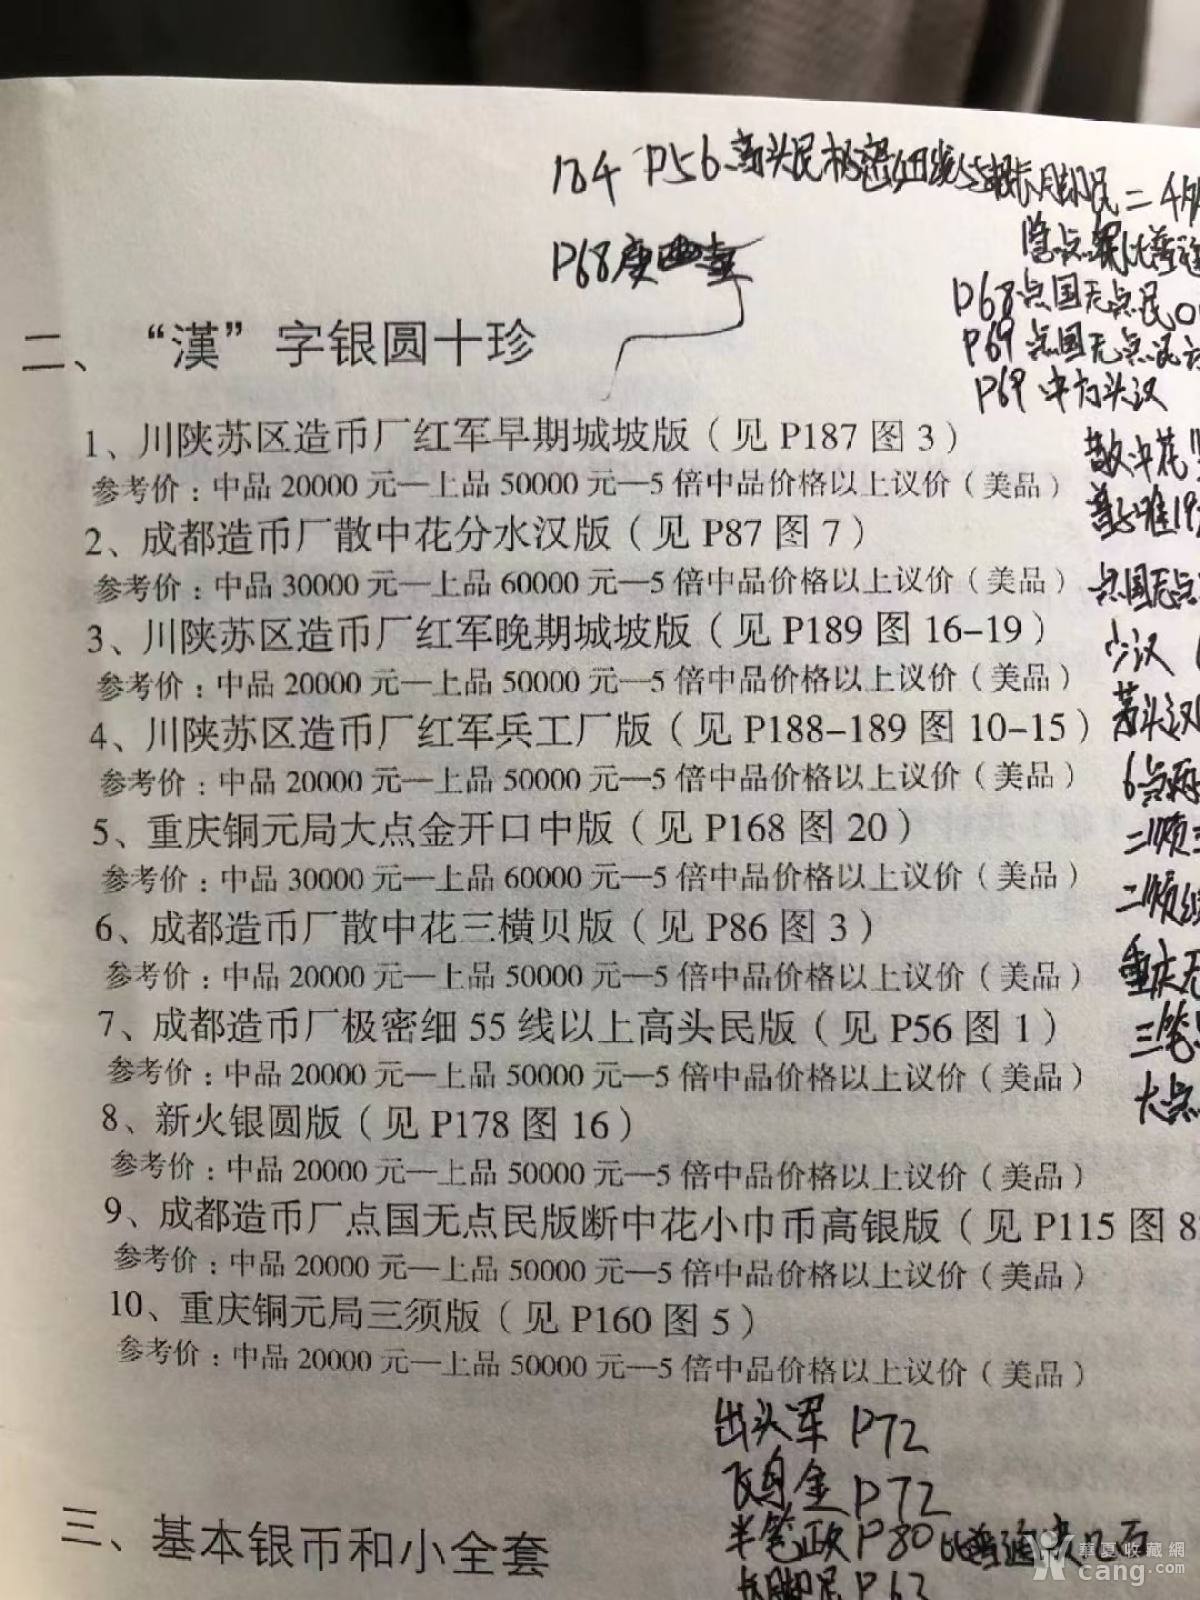 184 P56高头民极密细线55根长脚民=4
P68
P68点国无点民
P69点国无点民
P69 中方头汉
二、“漢”字银圆十珍
1、川陕苏区造币厂红军早期城坡版（见 P187 图 3）
参考价：中品 20000 元—上品 50000 元—5 倍中品价格以上议价（美品）
散中花
2、成都造币厂散中花分水汉版（见 P87 图 7）
参考价：中品 30000 元—上品 60000 元—5 倍中品价格以上议价（美品）
点国无点
3、川陕苏区造币厂红军晚期城坡版（见 P189 图 16-19）
少汉
参考价：中品 20000 元—上品 50000 元—5 倍中品价格以上议价（美品）
4、川陕苏区造币厂红军兵工厂版（见 P188-189 图 10-15）
头汉
参考价：中品 20000 元—上品 50000 元—5 倍中品价格以上议价（美品）
6点
5、重庆铜元局大点金开口中版（见 P168 图 20）
二顺
参考价：中品 30000 元—上品 60000 元—5 倍中品价格以上议价（美品）
二顺
6、成都造币厂散中花三横贝版（见 P86 图 3）
参考价：中品 20000 元—上品 50000 元—5 倍中品价格以上议价（美品）
重庆无
7、成都造币厂极密细 55 线以上高头民版（见 P56 图 1）
三笔
参考价：中品 20000 元—上品 50000 元—5 倍中品价格以上议价（美品）
大点
8、新火银圆版（见 P178 图 16）
参考价：中品 20000 元—上品 50000 元—5 倍中品价格以上议价（美品）
9、成都造币厂点国无点民版断中花小巾币高银版（见 P115 图 8
参考价：中品 20000 元—上品 50000 元—5 倍中品价格以上议价（美品）
10、重庆铜元局三须版（见 P160 图 5）
参考价：中品 20000 元—上品 50000 元—5 倍中品价格以上议价（美品）
出头军 P72
飞鸟金 P72
三、基本银币和小全套
半笔政 P80
长脚民 P63
華夏收藏網
cang.com